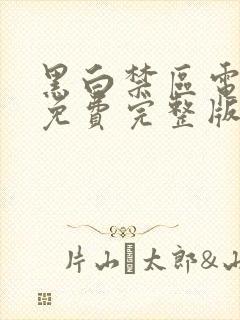 黑白禁區電
免費完整版
片山 太郎&山